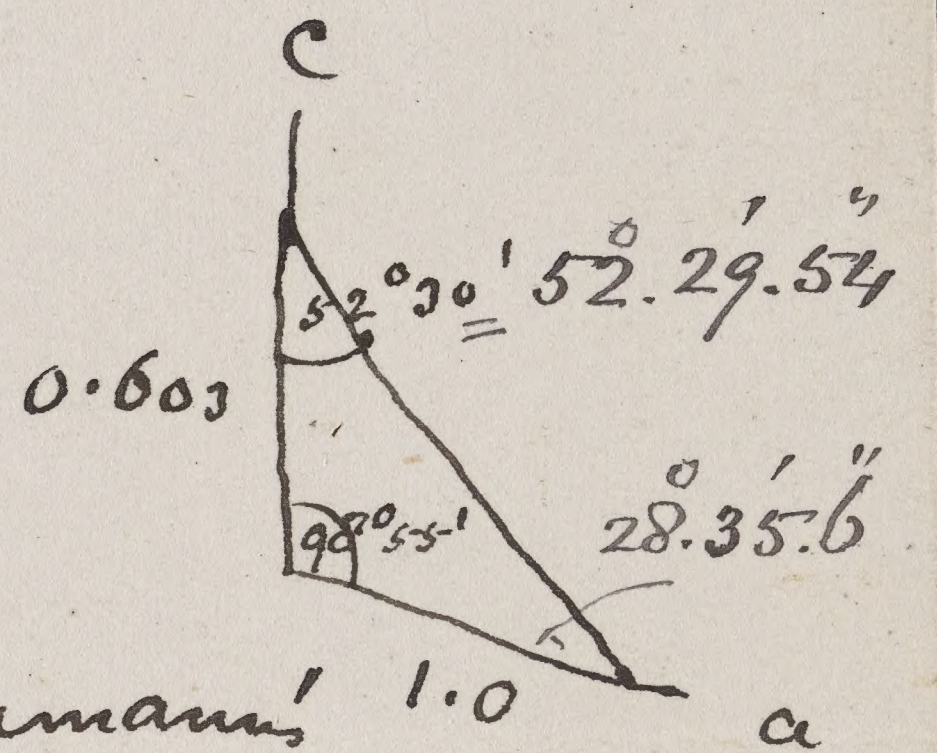 C
52°30' 52°.29'.54"
0.603
98°55' 28°.35'.6"
1.0
a